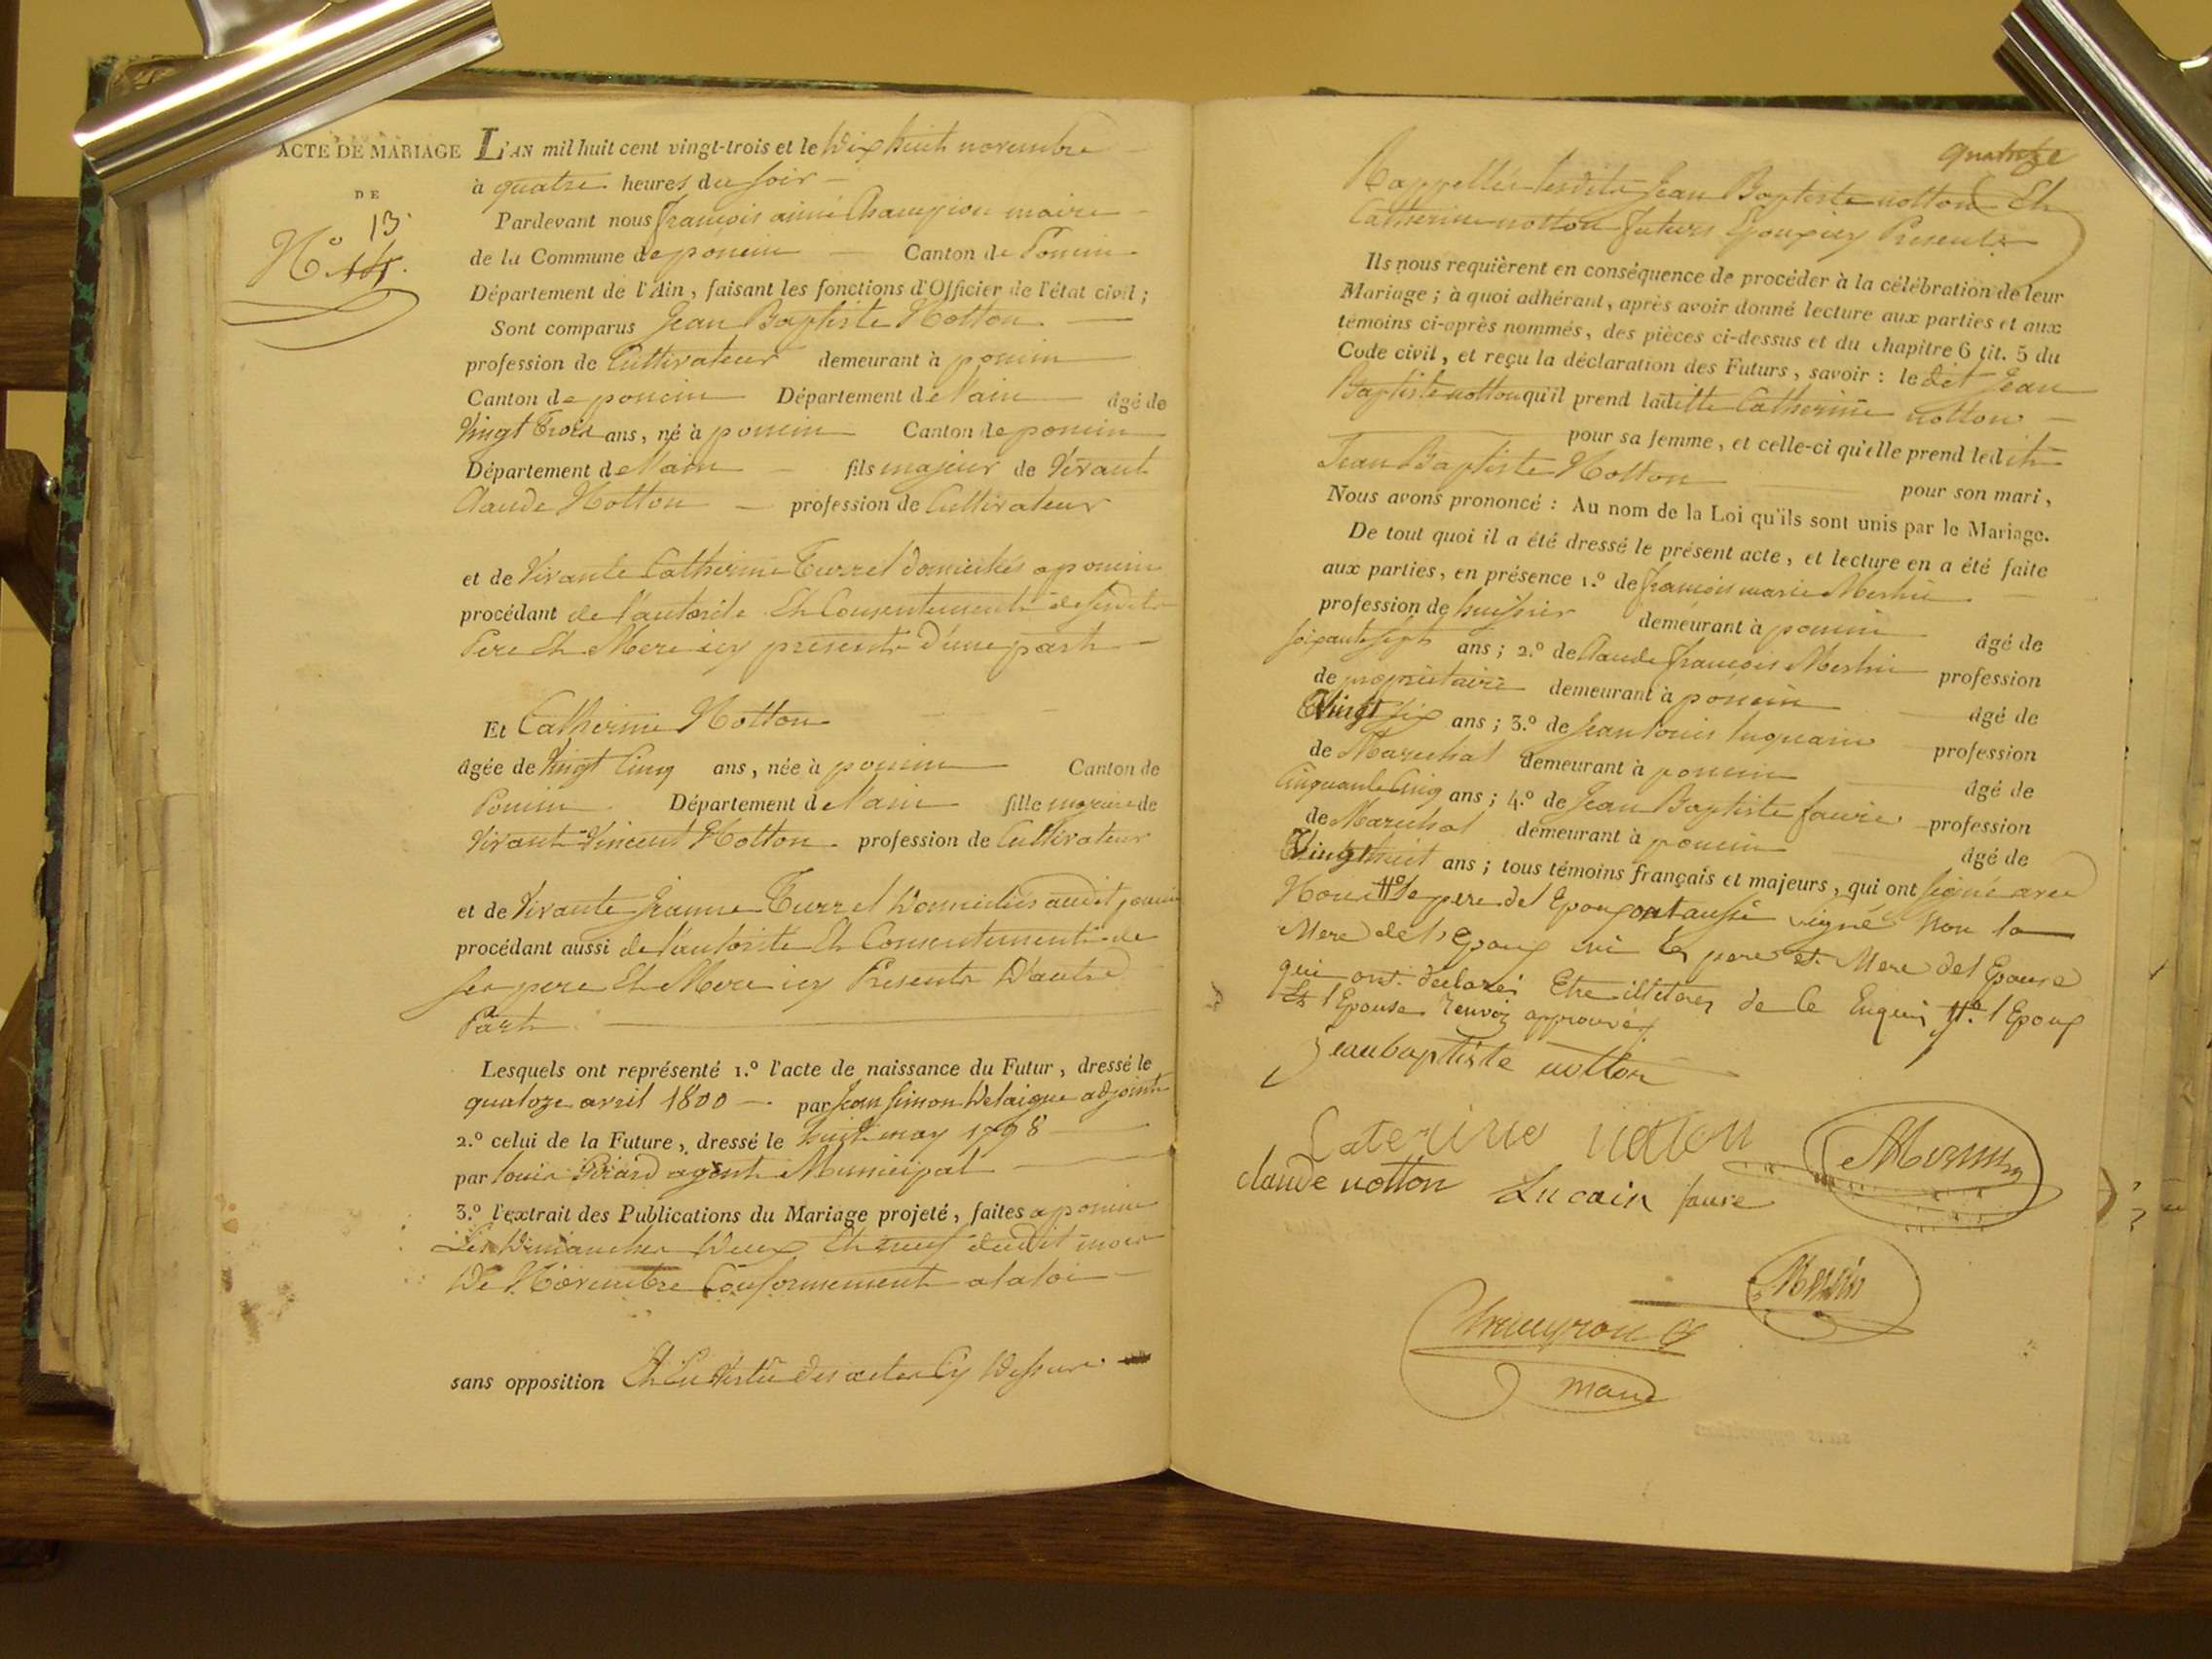 ACTE DE MARIAGE
DE
N.o 13. 14.
L'AN mil huit cent vingt-trois et le Dix huit novembre
à quatre heures du soir
Pardevant nous françois aimé Champion maire
de la Commune de poncin Canton de Poncin
Département de l'Ain, faisant les fonctions d'Officier de l'état civil;
Sont comparus Jean Baptiste Notton
profession de Cultivateur demeurant à poncin
Canton de poncin Département de l'ain âgé de
Vingt Trois ans, né à poncin Canton de poncin
Département de l'ain fils majeur de Vivant
Claude Notton profession de Cultivateur
et de Vivante Catherine Turrel domiciliés a poncin
procédant de l'autorité Et Consentement de sesdits
Pere Et Mere icy presents d'une part
Et Catherine Notton
âgée de Vingt Cinq ans, née à poncin Canton de
Poncin Département de l'ain fille majeure de
Vivant Vincent Notton profession de Cultivateur
et de Vivante Jeanne Turrel Domiciliés audit poncin
procédant aussi de l'autorité Et Consentement de
ses pere Et Mere icy Presents D'autre
Part
Lesquels ont représenté 1.º l'acte de naissance du Futur, dressé le
quatoze avril 1800 par Jean Simon Delaigue adjoint
2.º celui de la Future, dressé le huit may 1798
par louis agent Municipal
3.º l'extrait des Publications du Mariage projeté, faites a poncin
Les Dimanches Deux Et neuf dudit mois
De Novembre Conformement a la loi
sans opposition Et En Vertu des actes Cy Dessus
quatoze
Rappellés lesdits Jean Baptiste notton Et
Catherine notton futurs Epoux icy Presents
Ils nous requièrent en conséquence de procéder à la célébration de leur
Mariage; à quoi adhérant, après avoir donné lecture aux parties et aux
témoins ci-après nommés, des pièces ci-dessus et du chapitre 6 tit. 5 du
Code civil, et reçu la déclaration des Futurs, savoir: le dit Jean
Baptiste notton qu'il prend laditte Catherine notton
pour sa femme, et celle-ci qu'elle prend ledit
Jean Baptiste Notton pour son mari,
Nous avons prononcé: Au nom de la Loi qu'ils sont unis par le Mariage.
De tout quoi il a été dressé le présent acte, et lecture en a été faite
aux parties, en présence 1.º de françois marie
profession de huissier demeurant à poncin âgé de
soixante sept ans; 2.º de Claude françois profession
de propriétaire demeurant à poncin âgé de
Vingt six ans; 3.º de Jean louis luquain profession
de Marechal demeurant à poncin âgé de
Cinquante Cinq ans; 4.º de Jean Baptiste faure profession
de Marechal demeurant à poncin âgé de
Vingt huit ans; tous témoins français et majeurs, qui ont signé avec
Nous le pere del Epoux ont aussi signé Non la
Mere de l'epoux ni les pere et Mere del Epouse
qui ont déclarés Etre illiterés de Ce Enquis l Epoux
Et l Epouse renvoi approuvé
jeanbaptiste notton
Caterine notton
claude notton Lucain faure